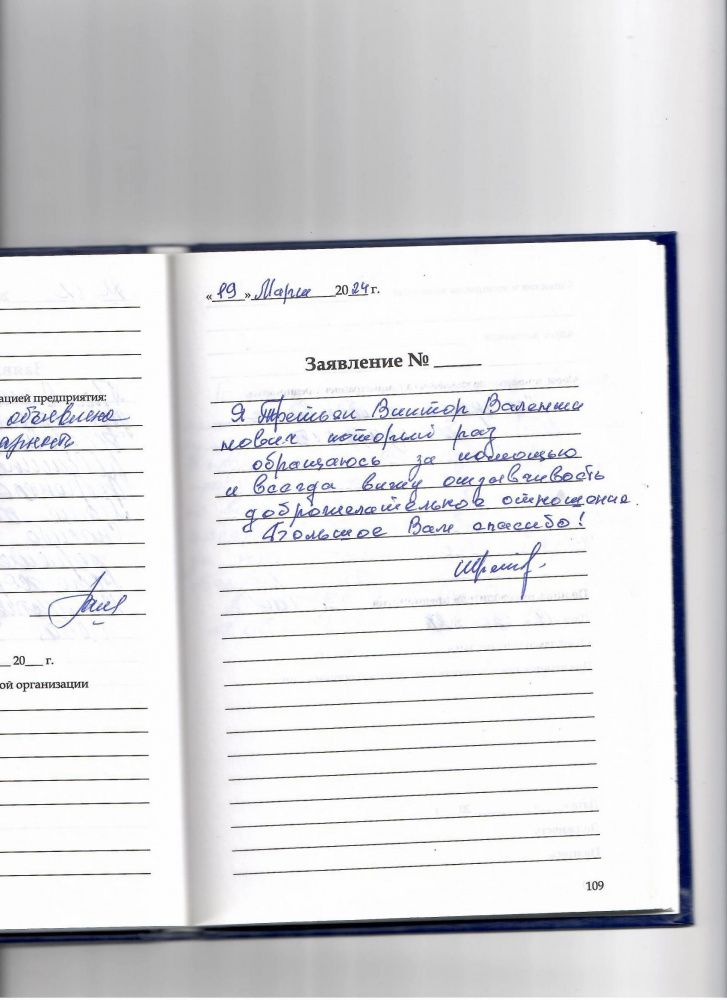 ацией предприятия:
объявлена
арность
20___ г.
ой организации
«19» Марта 2024 г.
Заявление № _____
Я Третьяк Виктор Валенти
нович который раз
обращаюсь за помощью
и всегда вижу отзывчивость
доброжелательное отношение.
Большое Вам спасибо!
109